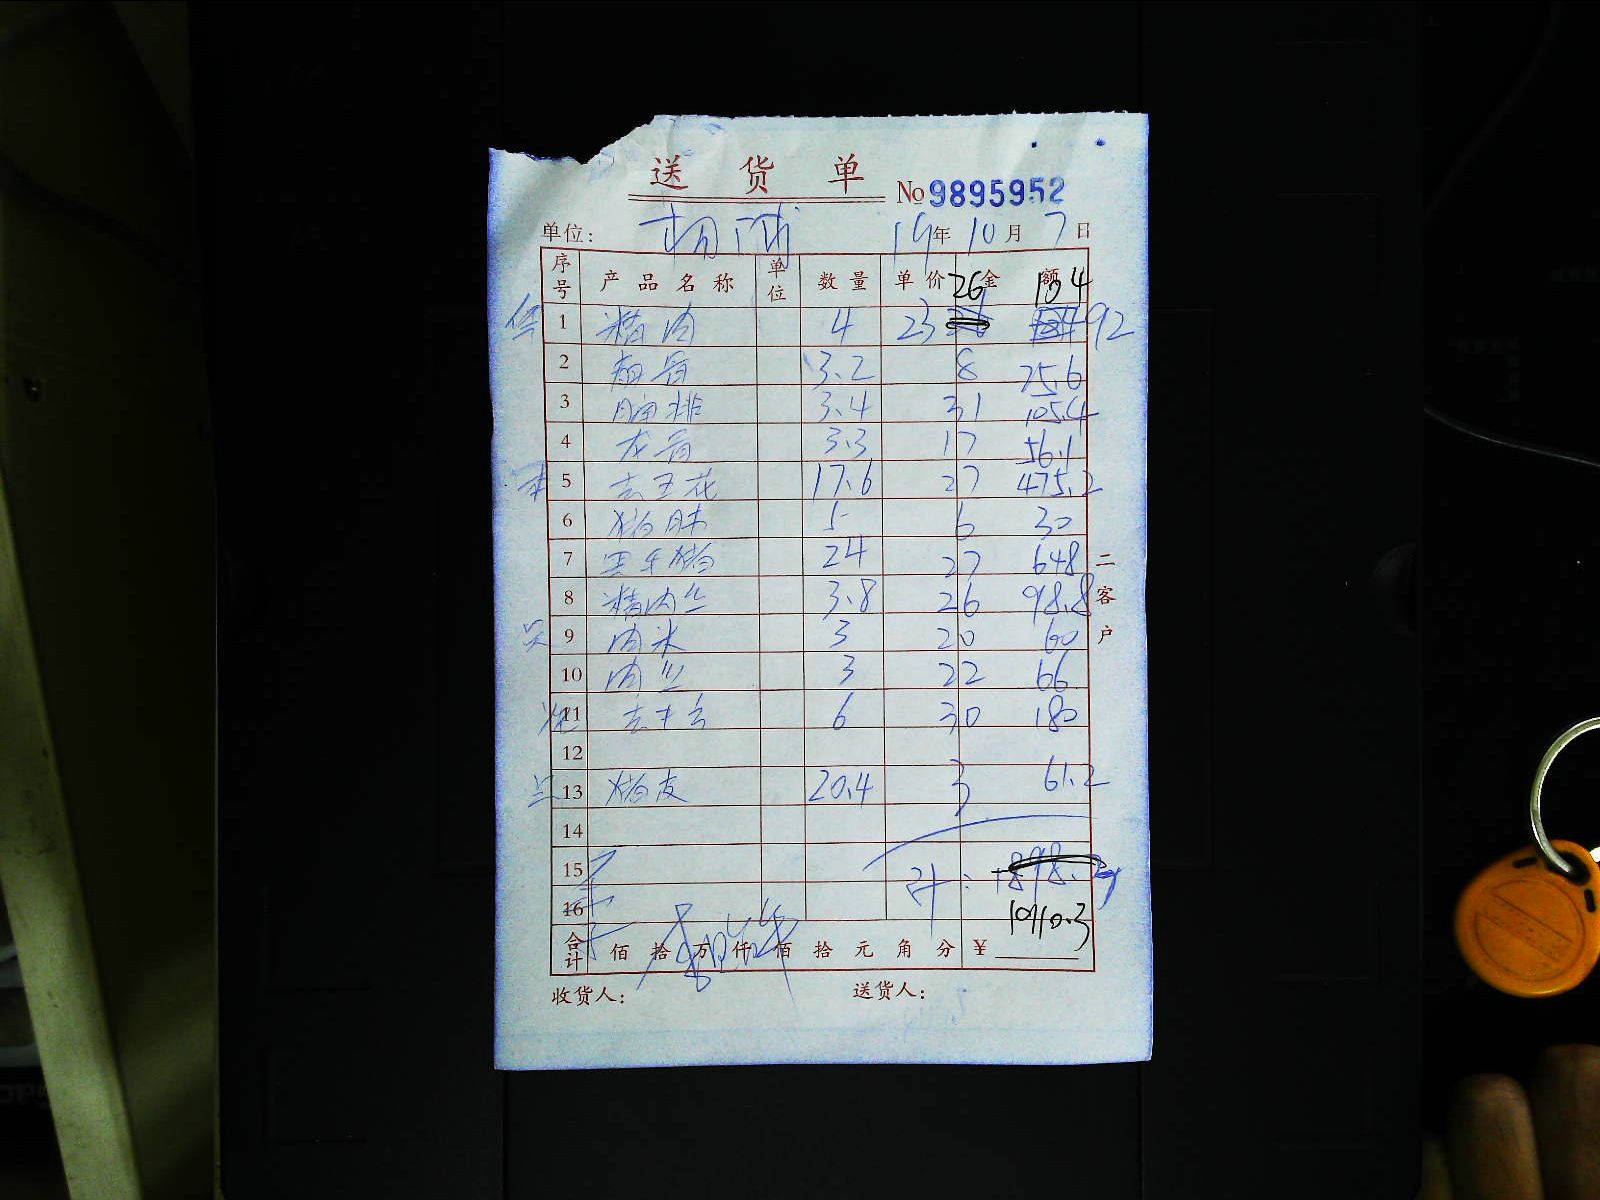 送货单
No 9895952
单位: 杨 19年10月7日
序号 产品名称 单位 数量 单价 金额
26 104
1 精肉 4 23 92
2 扇骨 3.2 8 25.6
3 腩排 3.4 31 105.4
4 龙骨 3.3 17 56.1
5 去五花 17.6 27 475.2
6 猪 5 6 30
7 黑毛猪 24 27 648
8 精肉丝 3.8 26 98.8
9 肉米 3 20 60
10 肉丝 3 22 66
11 去 6 30 180
12
13 猪皮 20.4 3 61.2
14
15 计: 1898.3
16 1910.3
合计 佰拾万仟佰拾元角分 ¥
收货人: 送货人:
二客户